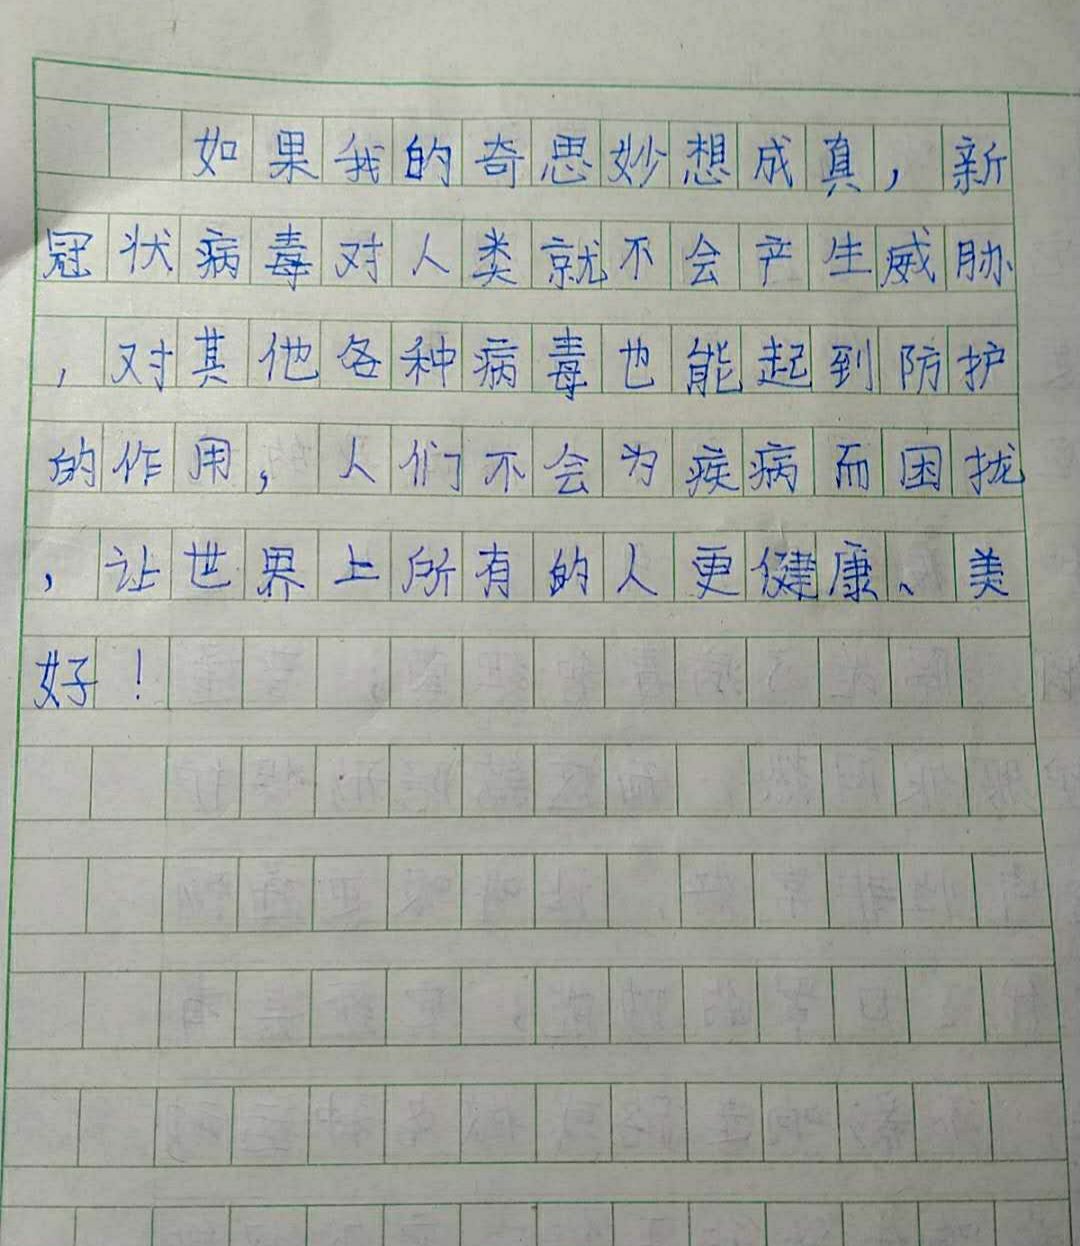 如果我的奇思妙想成真，新
冠状病毒对人类就不会产生威胁
，对其他各种病毒也能起到防护
的作用，人们不会为疾病而困拢
，让世界上所有的人更健康、美
好！